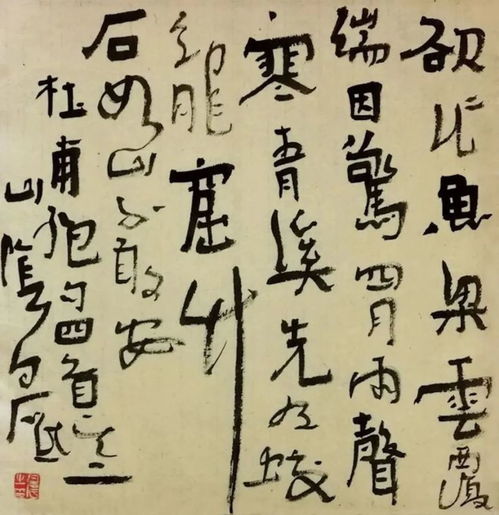 欲作魚梁雲覆
湍因驚四月雨聲
寒青溪先有蛟
龍窟竹
石如山不敢安
杜甫絕句四首之二
山陰白砥